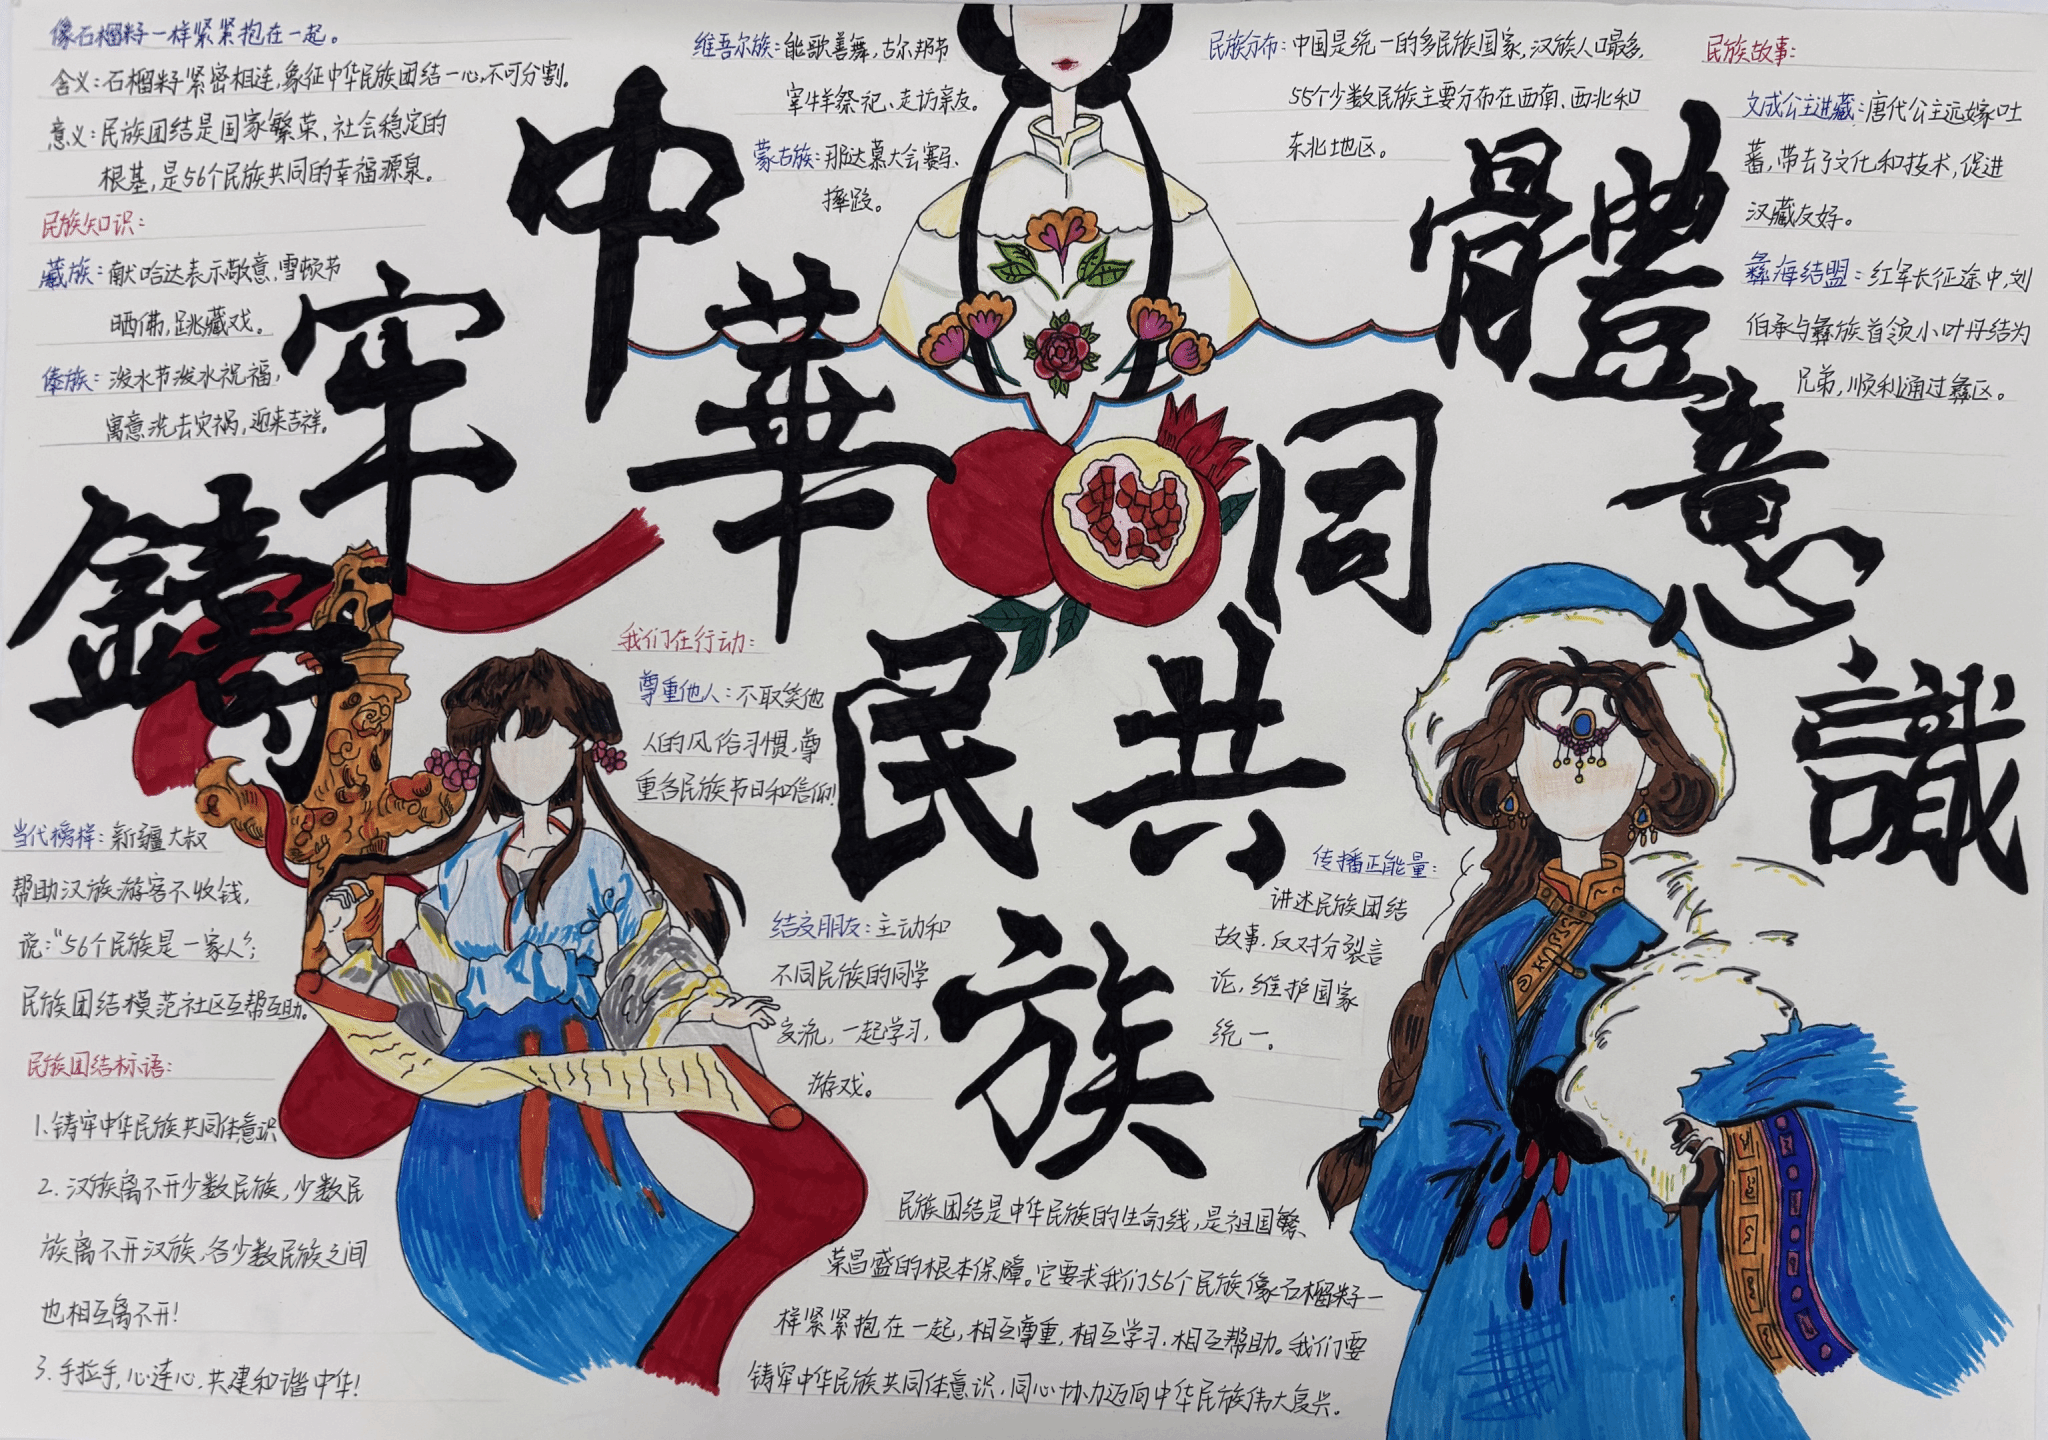 鑄牢中華民族共同體意識
像石榴籽一样紧紧抱在一起。
含义：石榴籽紧密相连，象征中华民族团结一心，不可分割。
意义：民族团结是国家繁荣，社会稳定的
根基，是56个民族共同的幸福源泉。
民族知识：
藏族：献哈达表示敬意，雪顿节
晒佛，跳藏戏。
傣族：泼水节泼水祝福，
寓意洗去灾祸，迎来吉祥。
维吾尔族：能歌善舞，古尔邦节
宰牛羊祭祀、走访亲友。
蒙古族：那达慕大会赛马、
摔跤。
民族分布：中国是统一的多民族国家，汉族人口最多，
55个少数民族主要分布在西南、西北和
东北地区。
民族故事：
文成公主进藏：唐代公主远嫁吐
蕃，带去了文化和技术，促进
汉藏友好。
彝海结盟：红军长征途中，刘
伯承与彝族首领小叶丹结为
兄弟，顺利通过彝区。
当代榜样：新疆大叔
帮助汉族游客不收钱，
说：“56个民族是一家人”；
民族团结模范社区互帮互助。
民族团结标语：
1.铸牢中华民族共同体意识
2.汉族离不开少数民族，少数民
族离不开汉族，各少数民族之间
也相互离不开！
3.手拉手，心连心，共建和谐中华！
我们在行动：
尊重他人：不取笑他
人的风俗习惯，尊
重各民族节日和信仰！
结交朋友：主动和
不同民族的同学
交流，一起学习，
游戏。
传播正能量：
讲述民族团结
故事，反对分裂言
论，维护国家
统一。
民族团结是中华民族的生命线，是祖国繁
荣昌盛的根本保障。它要求我们56个民族像石榴籽一
样紧紧抱在一起，相互尊重，相互学习，相互帮助。我们要
铸牢中华民族共同体意识，同心协力迈向中华民族伟大复兴。